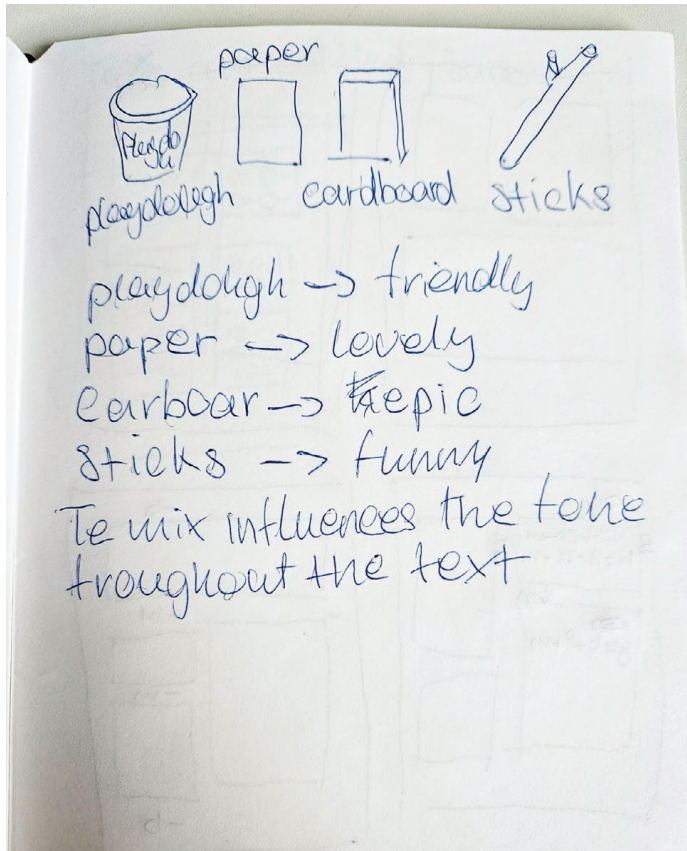 paper
Playdo
playdough
cardboard
sticks
playdough -> friendly
paper -> lovely
Carboar -> epic
sticks -> funny
Te mix influences the tone
troughout the text